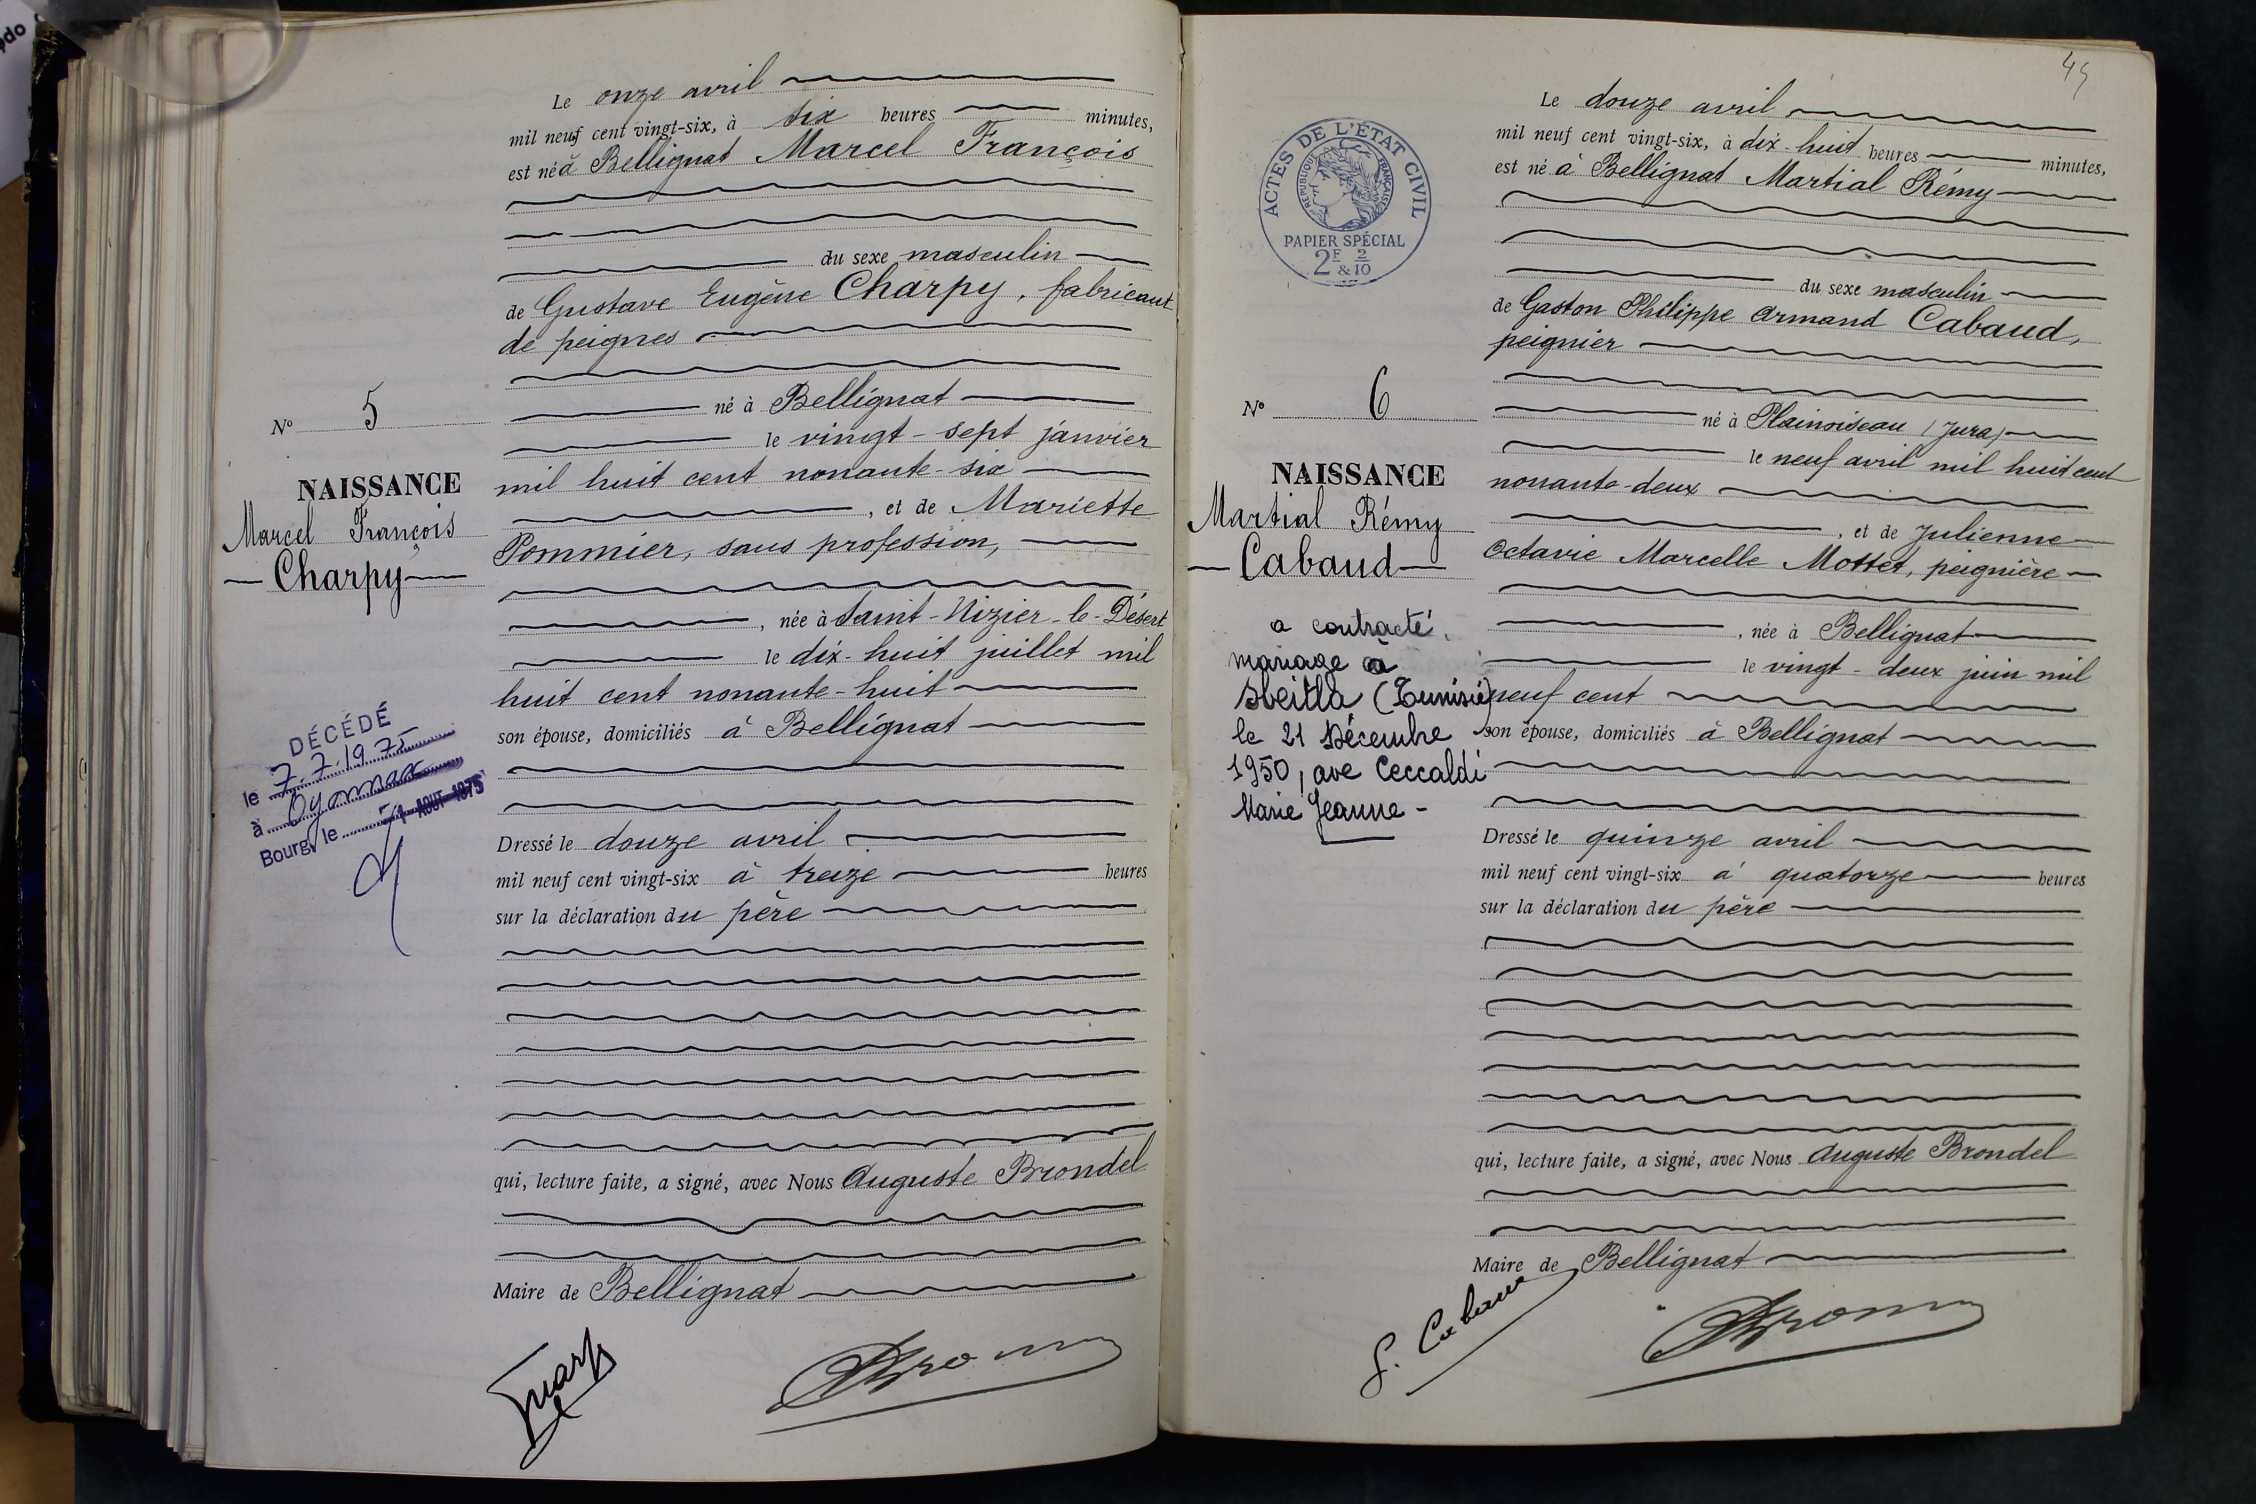 Le onze avril
mil neuf cent vingt-six, à six heures minutes,
est né à Bellignat Marcel François
du sexe masculin
de Gustave Eugène Charpy, fabricant
de peignes
né à Bellignat
le vingt-sept janvier
mil huit cent nonante-six
, et de Mariette
Pommier, sans profession,
, née à Saint-Nizier-le-Désert
le dix-huit juillet mil
huit cent nonante-huit
son épouse, domiciliés à Bellignat
Dressé le douze avril
mil neuf cent vingt-six à treize heures
sur la déclaration du père
qui, lecture faite, a signé, avec Nous Auguste Brondel
Maire de Bellignat
No 5
NAISSANCE
Marcel François
Charpy
DÉCÉDÉ
le 7.7.1975
à Oyonnax
Bourg, le AOUT 1975
45
Le douze avril
mil neuf cent vingt-six, à dix-huit heures minutes,
est né à Bellignat Martial Rémy
du sexe masculin
de Gaston Philippe Armand Cabaud,
peignier
né à Plainoiseau (Jura)
le neuf avril mil huit cent
nonante-deux
, et de Julienne
Octavie Marcelle Mottet, peignière
, née à Bellignat
le vingt-deux juin mil
neuf cent
son épouse, domiciliés à Bellignat
Dressé le quinze avril
mil neuf cent vingt-six à quatorze heures
sur la déclaration du père
qui, lecture faite, a signé, avec Nous Auguste Brondel
Maire de Bellignat
G. Cabaud
ACTES DE L'ÉTAT CIVIL
RÉPUBLIQUE FRANÇAISE
PAPIER SPÉCIAL
2F & 2/10
No 6
NAISSANCE
Martial Rémy
Cabaud
a contracté
mariage à
Sbeitla (Tunisie)
le 21 Décembre
1950, ave Ceccaldi
Marie Jeanne -